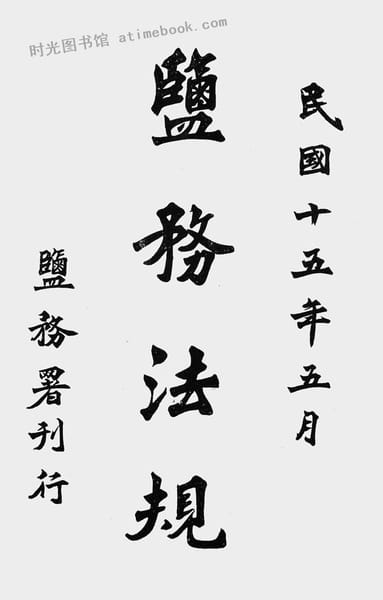 时光图书馆 atimebook.com
民國十五年五月
鹽務法規
鹽務署刊行